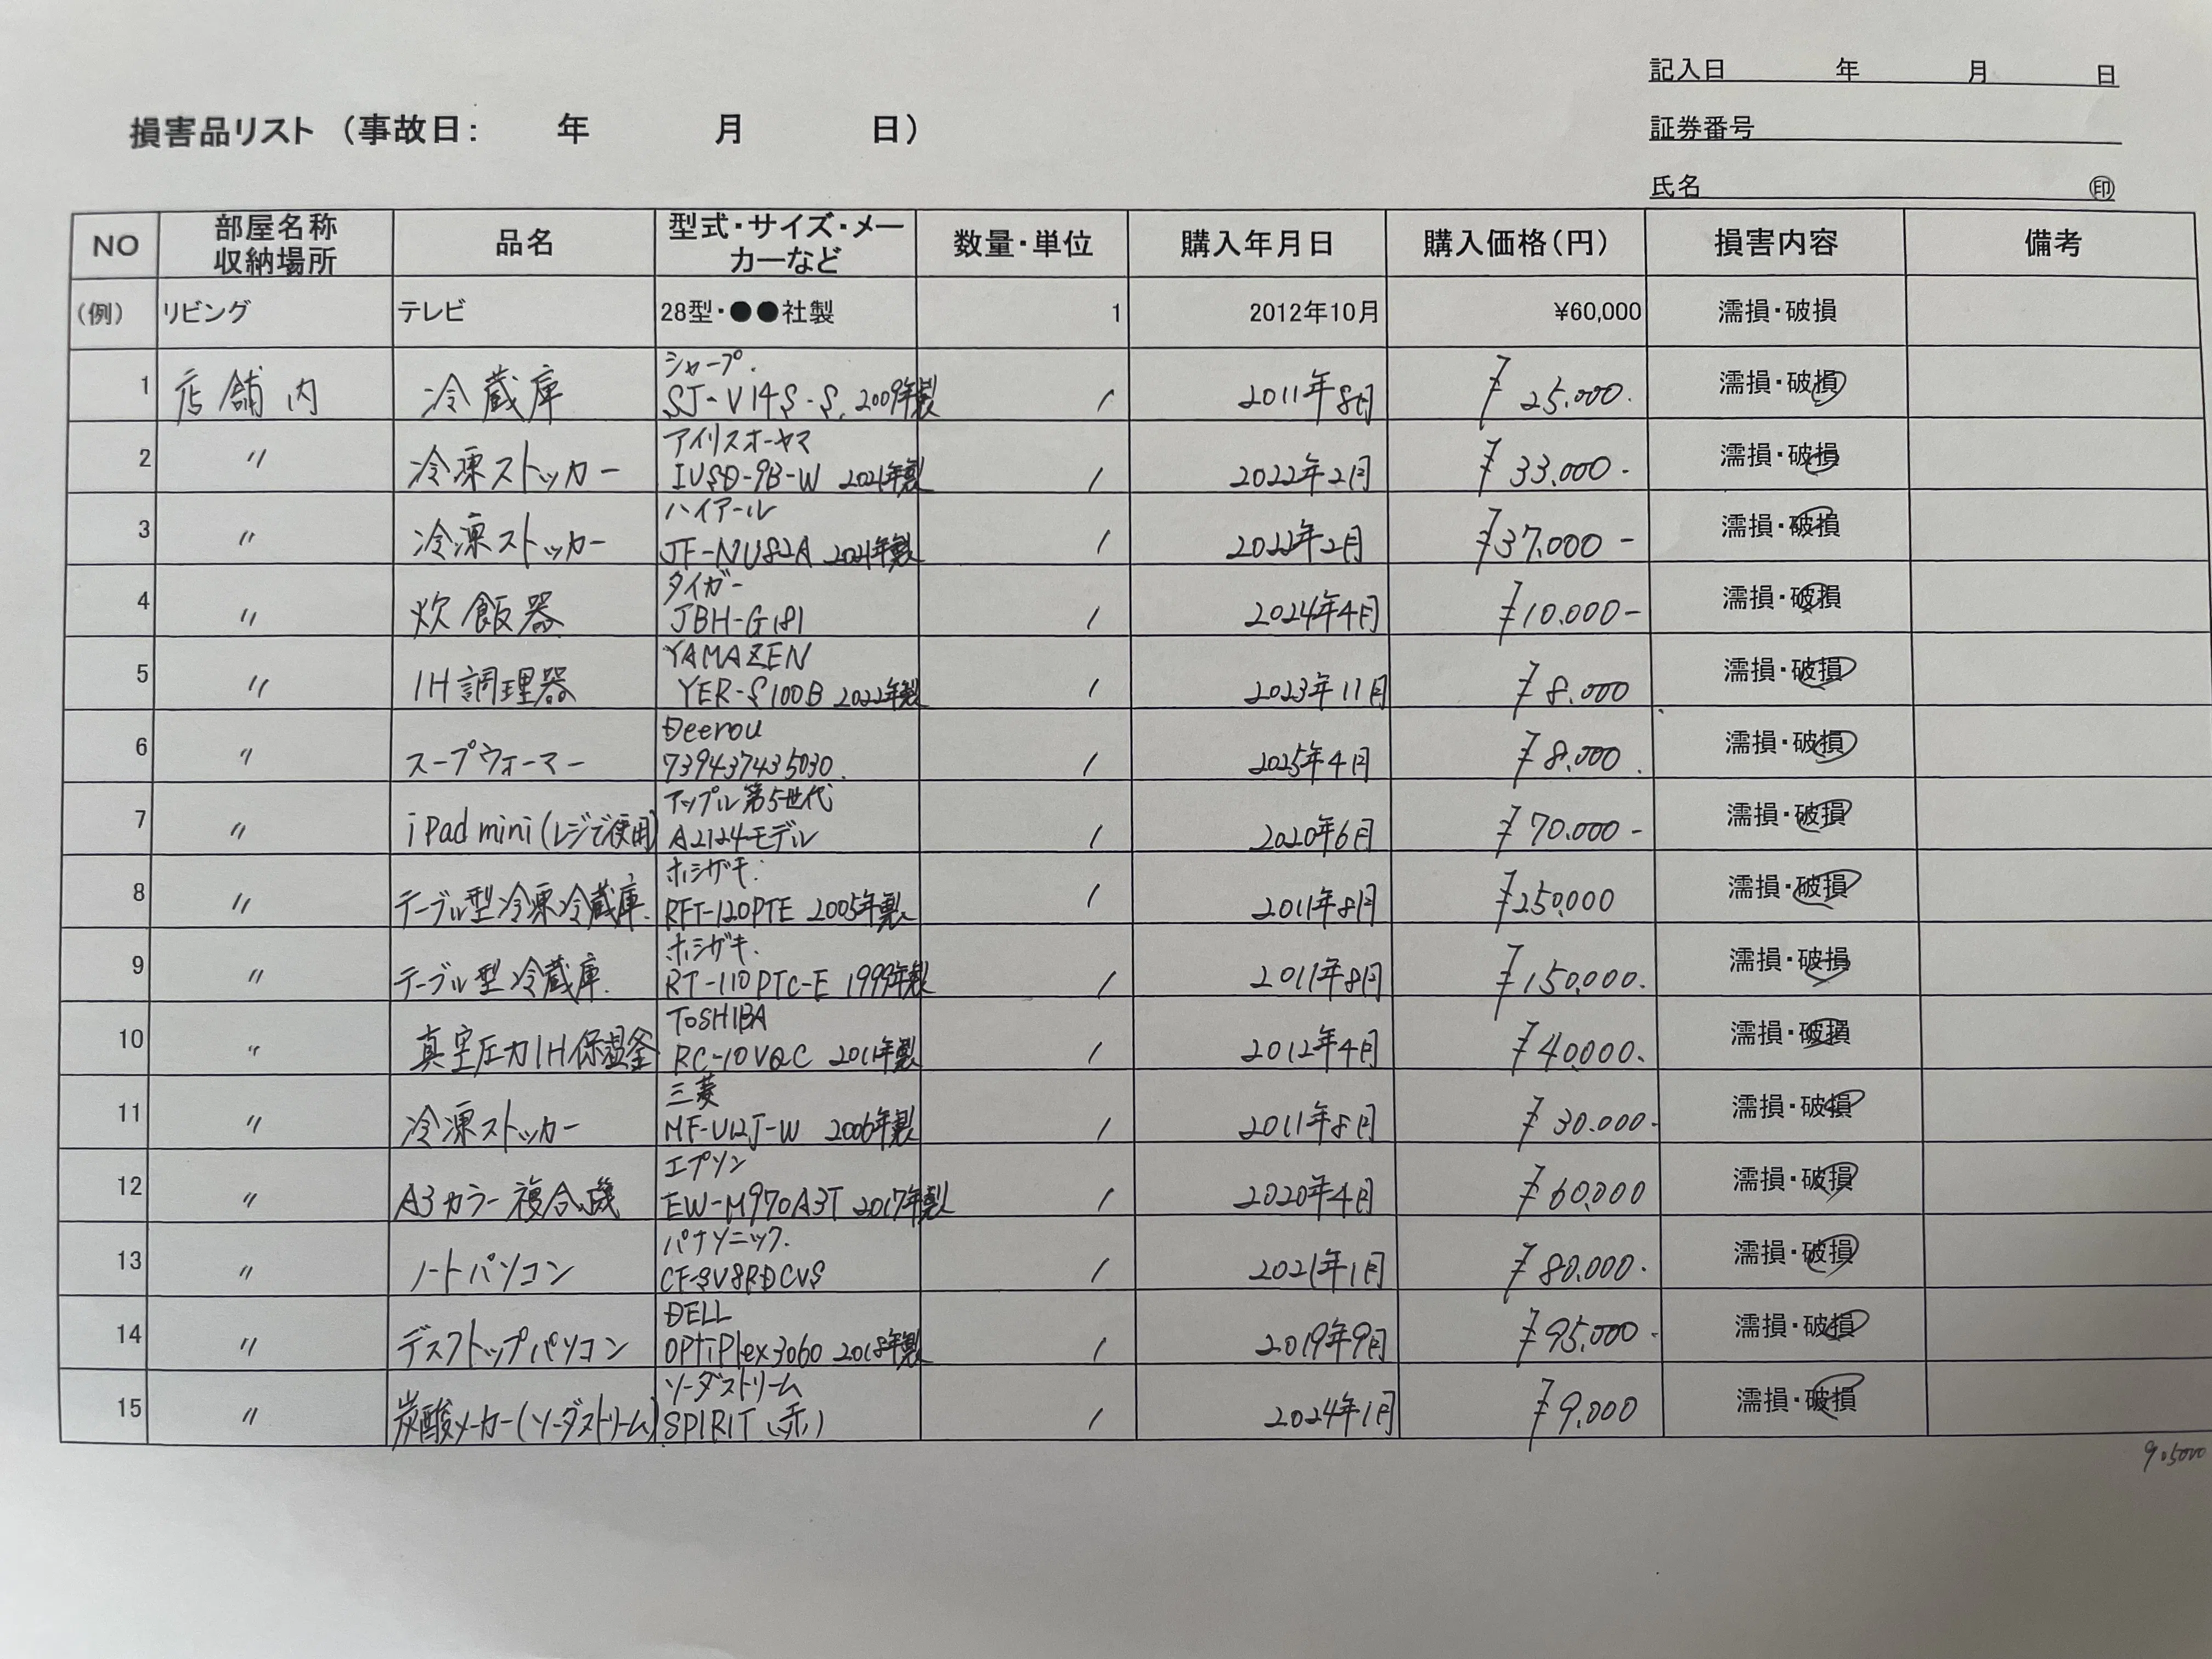 記入日 年 月 日
損害品リスト（事故日： 年 月 日）
証券番号
氏名 ㊞
NO 部屋名称 収納場所 品名 型式・サイズ・メーカーなど 数量・単位 購入年月日 購入価格（円） 損害内容 備考
（例） リビング テレビ 28型・●●社製 1 2012年10月 ¥60,000 濡損・破損
1 店舗内 冷蔵庫 シャープ. SJ-V14S-S. 2009年製 1 2011年8月 ¥25.000. 濡損・破損
2 〃 冷凍ストッカー アイリスオーヤマ IUSD-9B-W 2021年製 1 2022年2月 ¥33.000- 濡損・破損
3 〃 冷凍ストッカー ハイアール JF-NU82A 2021年製 1 2022年2月 ¥37.000- 濡損・破損
4 〃 炊飯器 タイガー JBH-G181 1 2024年4月 ¥10.000- 濡損・破損
5 〃 IH調理器 YAMAZEN YER-S100B 2022年製 1 2023年11月 ¥8.000 濡損・破損
6 〃 スープウォーマー Deerou 739437435030. 1 2025年4月 ¥8.000. 濡損・破損
7 〃 iPad mini(レジで使用) アップル第5世代 A2124モデル 1 2020年6月 ¥70.000- 濡損・破損
8 〃 テーブル型冷凍冷蔵庫. ホシザキ. RFT-120PTE 2005年製 1 2011年8月 ¥250.000 濡損・破損
9 〃 テーブル型冷蔵庫. ホシザキ. RT-110PTC-E 1999年製 1 2011年8月 ¥150.000. 濡損・破損
10 〃 真空圧力IH保温釜 TOSHIBA RC-10VQC 2011年製 1 2012年4月 ¥40.000. 濡損・破損
11 〃 冷凍ストッカー 三菱 MF-U12J-W 2006年製 1 2011年8月 ¥30.000- 濡損・破損
12 〃 A3カラー複合機 エプソン EW-M970A3T 2017年製 1 2020年4月 ¥60.000 濡損・破損
13 〃 ノートパソコン パナソニック. CF-SV8RDCVS 1 2021年1月 ¥80.000. 濡損・破損
14 〃 デスクトップパソコン DELL OPTiPlex3060 2018年製 1 2019年9月 ¥95.000- 濡損・破損
15 〃 炭酸メーカー(ソーダストリーム) ソーダストリーム SPIRIT (赤) 1 2024年1月 ¥9.000 濡損・破損